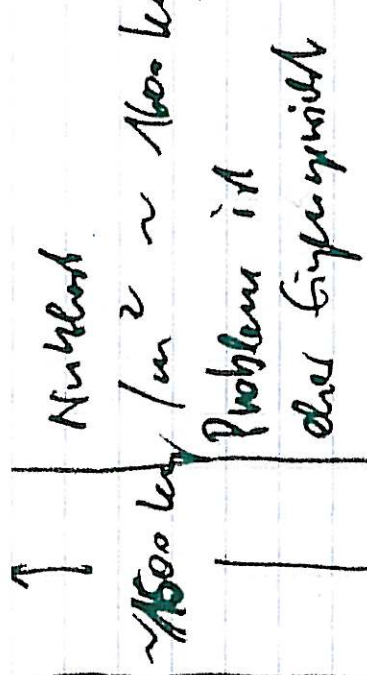 Nutzlast
~1500 kg/m² ~ 1600 k
Problem ist
das Eigengewicht